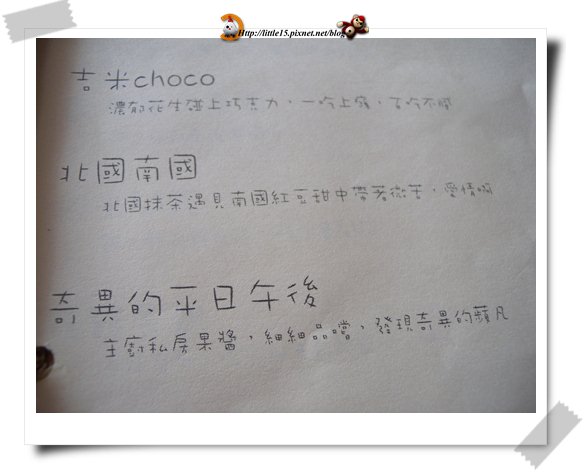 Http://little15.pixnet.net/blog
吉米choco
濃郁花生碰上巧克力、一吃上癮、百吃不膩
北國南國
北國抹茶遇見南國紅豆甜中帶著微苦，愛情啊
奇異的平日午後
主廚私房果醬，細細品嚐、發現奇異的蘋凡